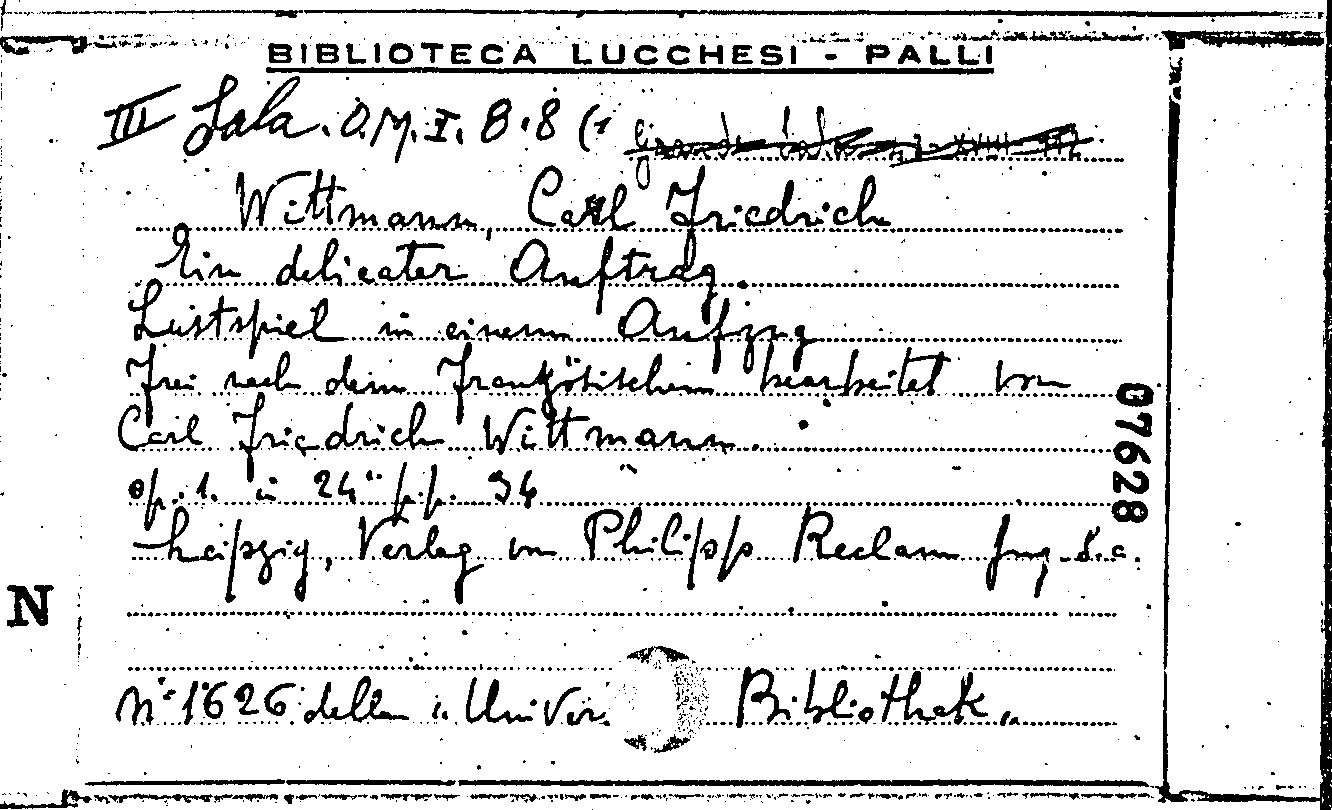 BIBLIOTECA LUCCHESI - PALLI
III Sala. O.M.I. 8.8 (1
Wittmann, Carl Friedrich
Ein delicater Auftrag.
Lustspiel in einem Aufzug
frei nach dem Französischen bearbeitet von
Carl Friedrich Wittmann.
op. 1. in 24° p.p. 34
Leipzig, Verlag von Philipp Reclam jun, s.a.
07628
N
N° 1626 della "Univer. Bibliothek"